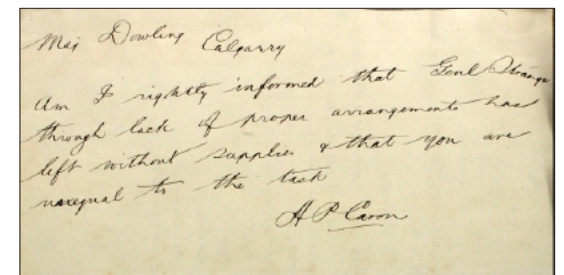 Maj Dowling Calgarry
Am I rightly informed that Genl Strange
through lack of proper arrangements has
left without supplies & that you are
unequal to the task
A P Caron